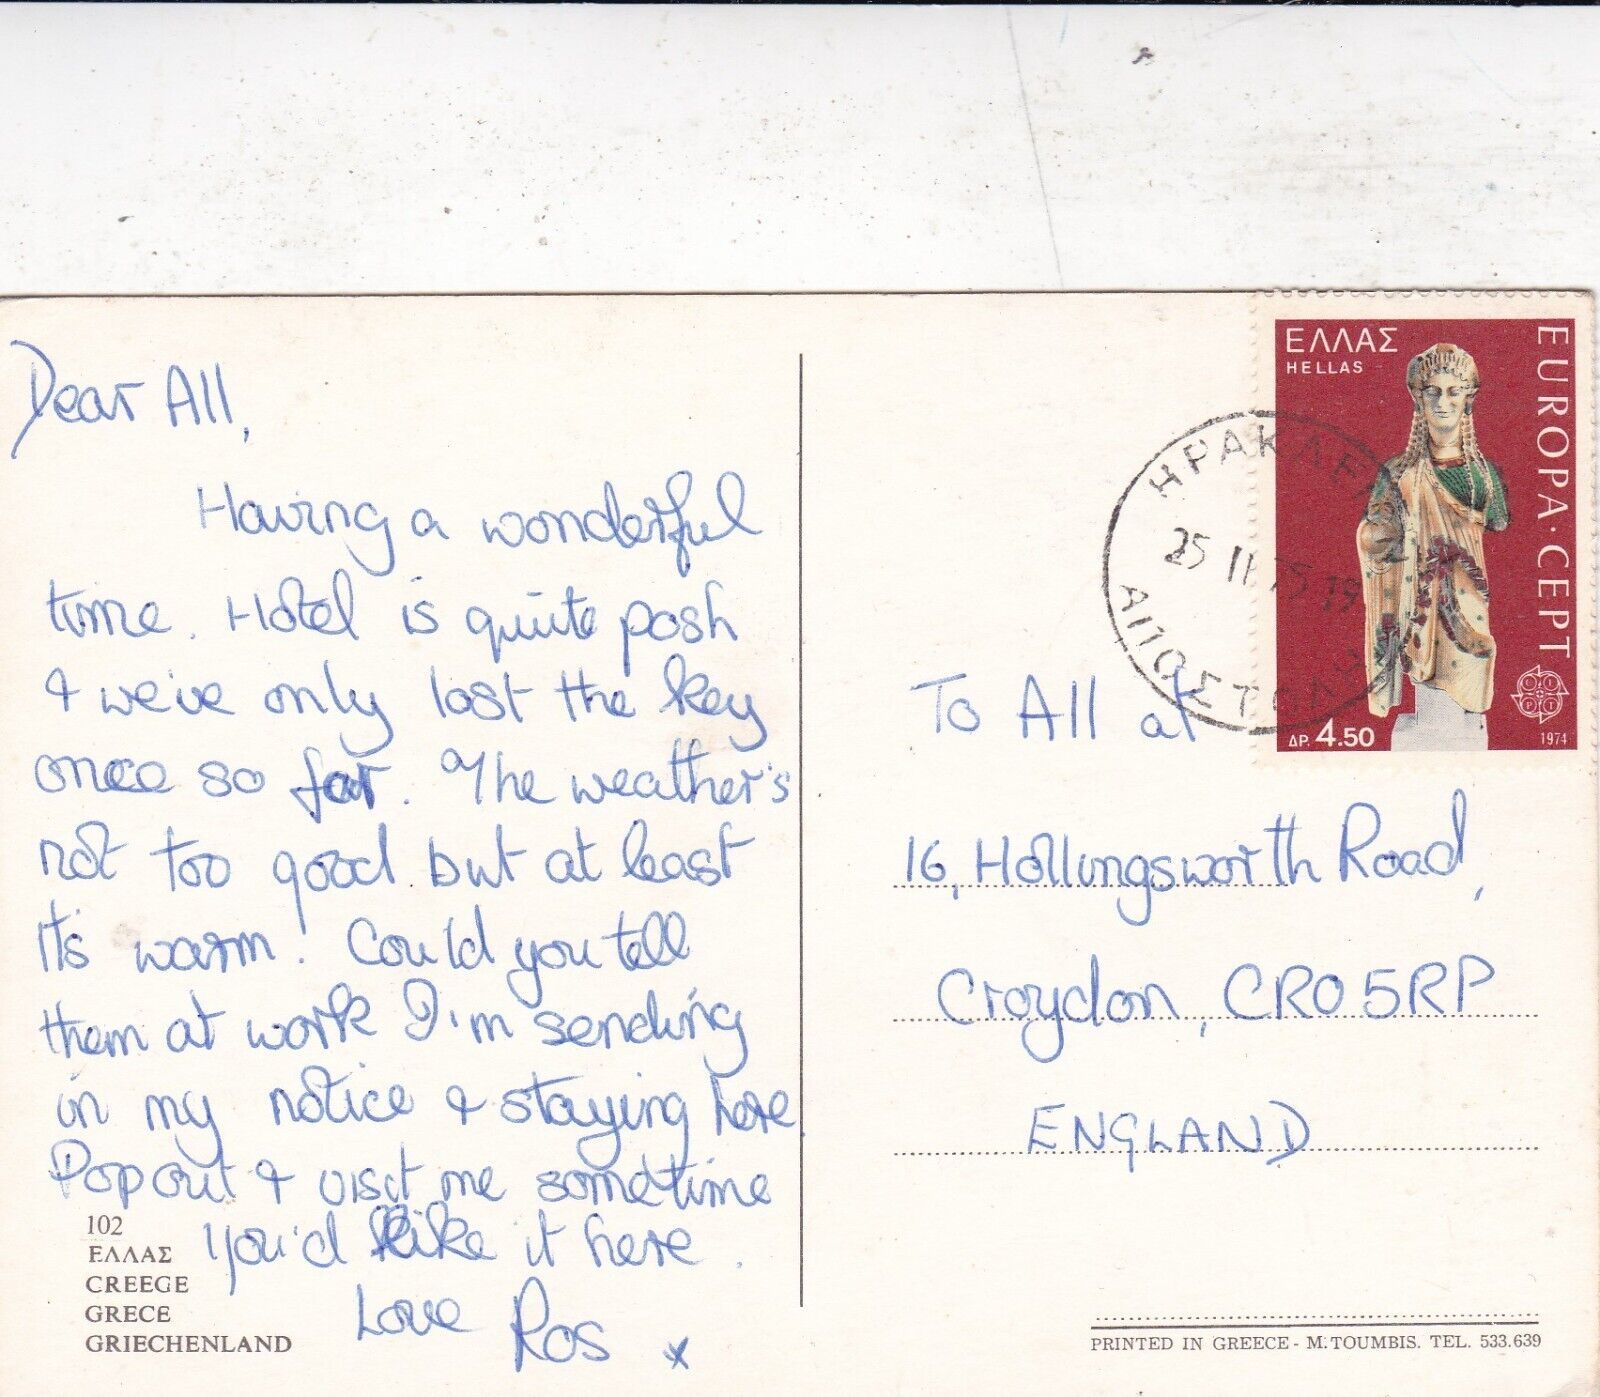 Dear All,
Having a wonderful
time. Hotel is quite posh
& we've only lost the key
once so far. The weather's
not too good but at least
it's warm. Could you tell
them at work I'm sending
in my notice & staying here.
Pop out & visit me sometime
You'd like it here.
Love Ros x
102
ΕΛΛΑΣ
CREEGE
GRECE
GRIECHENLAND
ΕΛΛΑΣ
HELLAS
EUROPA · CEPT
ΔΡ. 4.50
1974
ΗΡΑΚΛΕ
25 II 75 19
ΑΠΟΣΤΟΛ
To All at
16, Hollingsworth Road,
Croydon, CR0 5RP
ENGLAND
PRINTED IN GREECE - M. TOUMBIS. TEL. 533.639